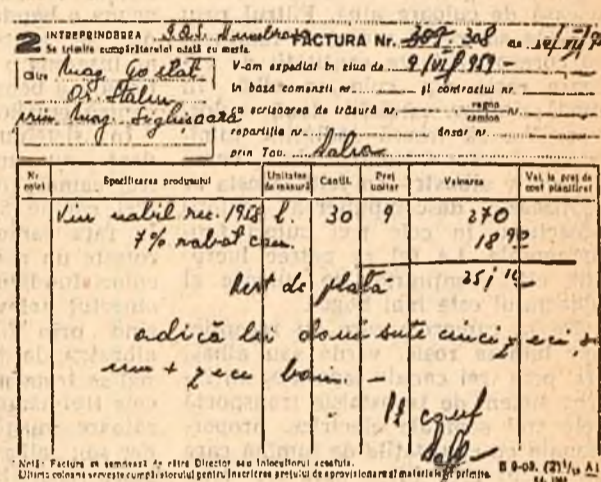 2 INTREPRINDEREA G.A.S. Dumbrava FACTURA Nr. 307 308 de
Se trimite cumpărătorului odată cu marfa.
Către Mag. Gostat V-am expediat în ziua de 9/VII 959
Or. Stalin în baza comenzii nr. și contractul nr.
prin Mag. Sighișoara cu scrisoarea de trăsură nr. vagon
camion
repartiția nr. dosar nr.
prin Tov.
Nr. colet Specificarea produsului Unitatea de măsură Cantit. Preț unitar Valoarea Val. la preț de cost planificat
Vin nobil rec. 1958 l. 30 9 270
7% rabat com. 18 90
Rest de plată 251 10
adică lei două sute cinci zeci și
unu + zece bani. —
Șef
Notă: Factura se semnează de către Director sau înlocuitorul acestuia.
Ultima coloană servește cumpărătorului pentru înscrierea prețului de aprovizionare al materialelor primite.